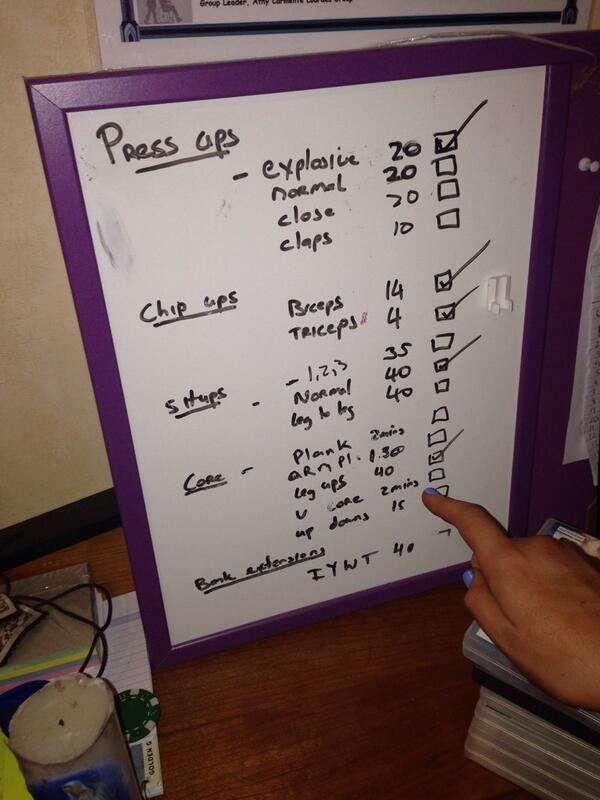 Group Leader, Athy Carmelite Lourdes Group
Press ups
- explosive 20
normal 20
close 20
claps 10
Chip ups
Biceps 14
TRICEPS 4
Situps
- 1,2,3 35
- Normal 40
leg to leg 40
Core - Plank 2mins
arm pl. 1.30
leg ups 40
V core 2mins
up downs 15
Back extensions
IYWT 40
GOLDEN G